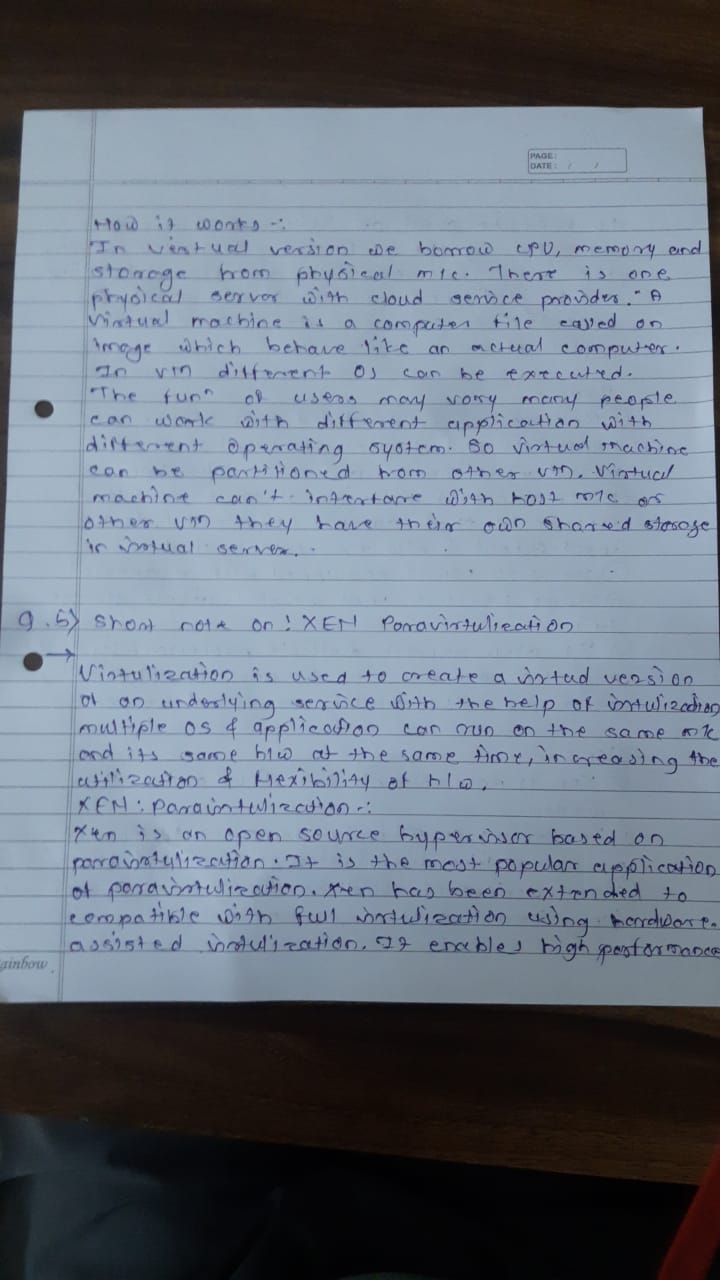 PAGE:
DATE: / /
How it works -:
In virtual version we borrow CPU, memory and
storage from physical m/c. There is one
physical server with cloud service provider. A
virtual machine is a computer file called on
image which behave like an actual computer.
In vm different OS can be executed.
The funⁿ of users may vary many people
can work with different application with
different operating system. So virtual machine
can be partitioned from other vm. Virtual
machine can't interfare with host m/c or
other vm they have their own shared storage
in virtual server.
Q.5) Short note on : XEN Paravirtulization
→
Virtulization is used to create a virtual version
of an underlying service with the help of virtulization
multiple OS & application can run on the same m/c
and its same h/w at the same time, increasing the
utilization & flexibility of h/w.
XEN : Paravirtulization -:
Xen is an open source hypervisor based on
paravirtulization. It is the most popular application
of paravirtulization. Xen has been extended to
compatible with full virtulization using hardware-
assisted virtulization. It enables high performance
ainbow